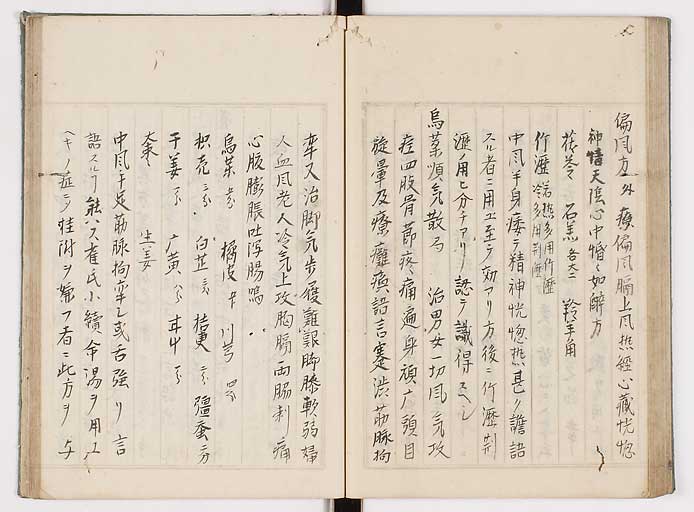 偏風方 外 療偏風胸上風熱経心蔵恍惚
神情天陰心中惛々如酔方
茯苓 石羔 各六 羚羊角
竹瀝 冷多用荊瀝 若熱多用竹瀝
中風半身痿テ精神恍惚熱甚ク譫語
スル者ニ用工至テ効アリ方後ニ竹瀝荊
瀝ノ用ヒ分チアリ 認テ識得スヘシ
烏薬順気散 局 治男女一切風気攻
疰四肢骨節疼痛遍身頑广頭目
旋暈及療癱瘓語言蹇渋筋脉拘
挛又治脚気歩履難艱脚膝軟弱婦
人血風老人冷気上攻胸膈両脇刺痛
心腹膨脹吐瀉腸鳴
烏薬 橘皮 川芎
枳壳 白芷 桔更 殭蚕
干姜 广黄 甘草
大枣 生姜
中風手足筋脉拘挛シ或舌強リ言
語スルヿ能ハス崔氏小續命湯ヲ用工
ヘキノ症ニ 附ヲ 者ニ此方ヲ与